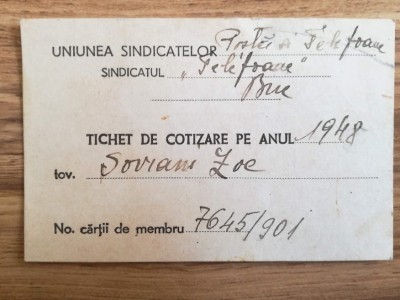 UNIUNEA SINDICATELOR Poștă și Telefoane
SINDICATUL „Telefoane"
Buc
TICHET DE COTIZARE PE ANUL 1948
tov. Soviani Zoe
No. cărții de membru 7645/901